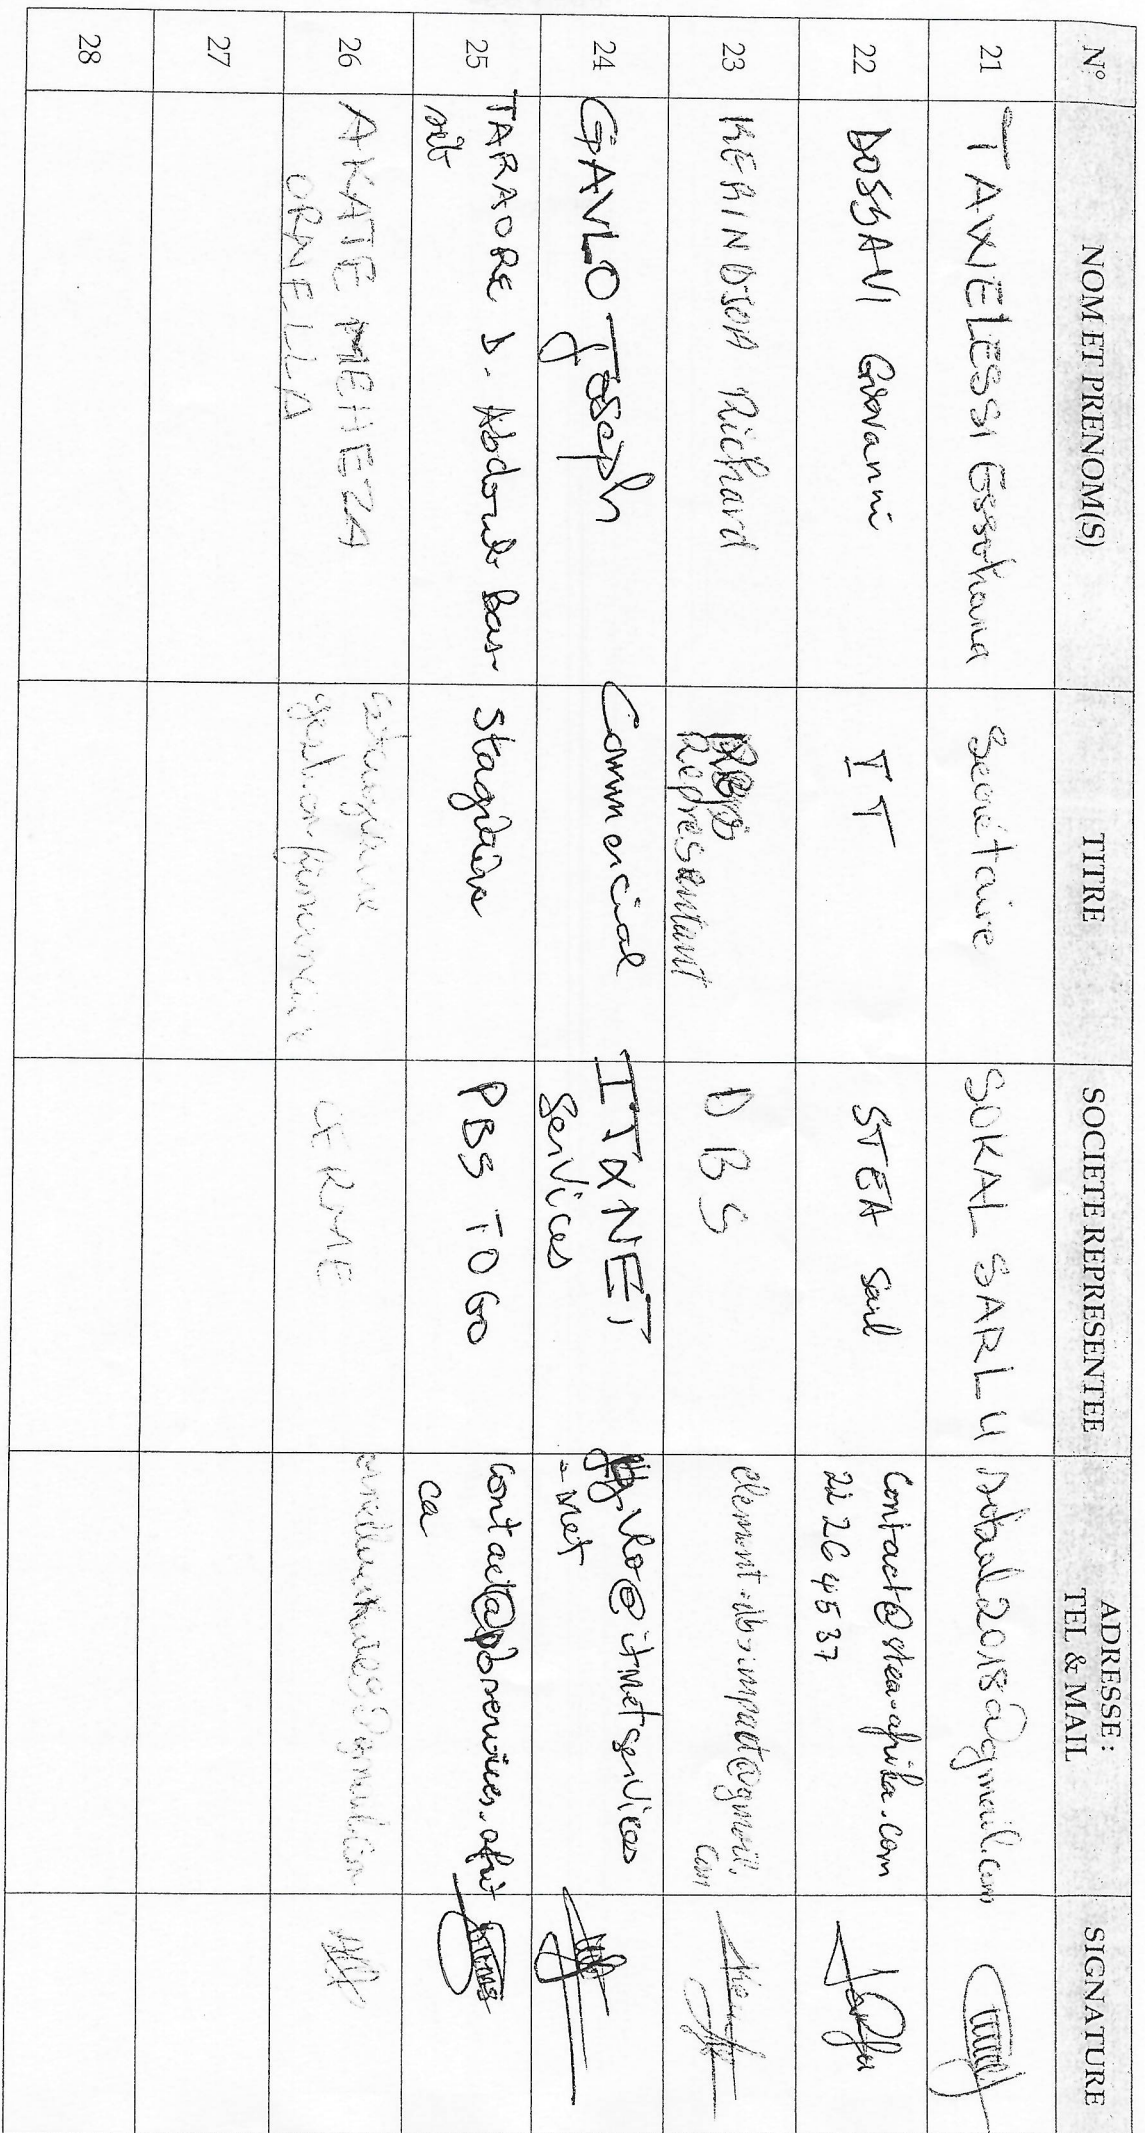 N° NOM ET PRENOM(S) TITRE SOCIETE REPRESENTEE ADRESSE : TEL & MAIL SIGNATURE
21 TAWELESSI Essohana Secrétaire SOKAL SARL U sokal2018@gmail.com
22 DOSSAVI Giovanni IT STEA Sarl Contact@stea-afrika.com
22264537
23 Richard Représentant DBS
24 GAVLO Joseph Commercial ITXNET
Services @itnetservices
.net
25 TARAORE D. Abdoul bas-
sit Stagiaire PBS TOGO contact@pbservices.afri
ca
26 AKATE MEHEZA
ORNELLA CERME
27
28